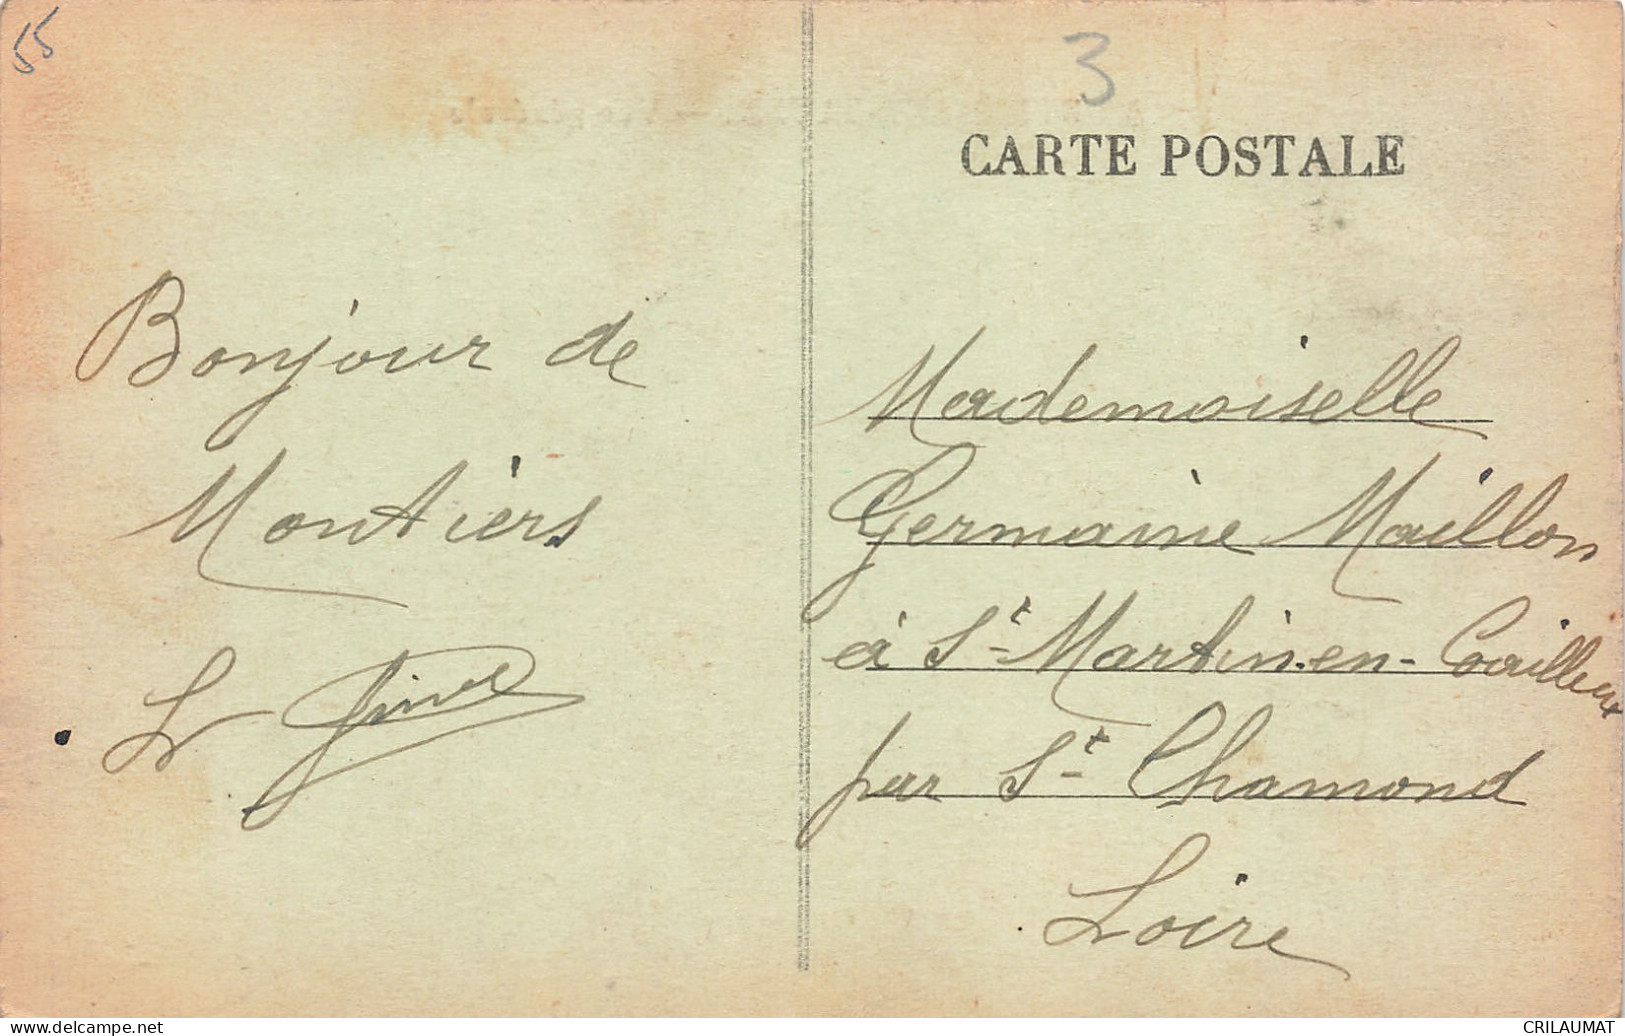 55
3
CARTE POSTALE
Bonjour de
Montiers
Mademoiselle
Germaine Maillon
à St Martin-en-Coailleux
par St Chamond
Loire
www.delcampe.net
CRILAUMAT